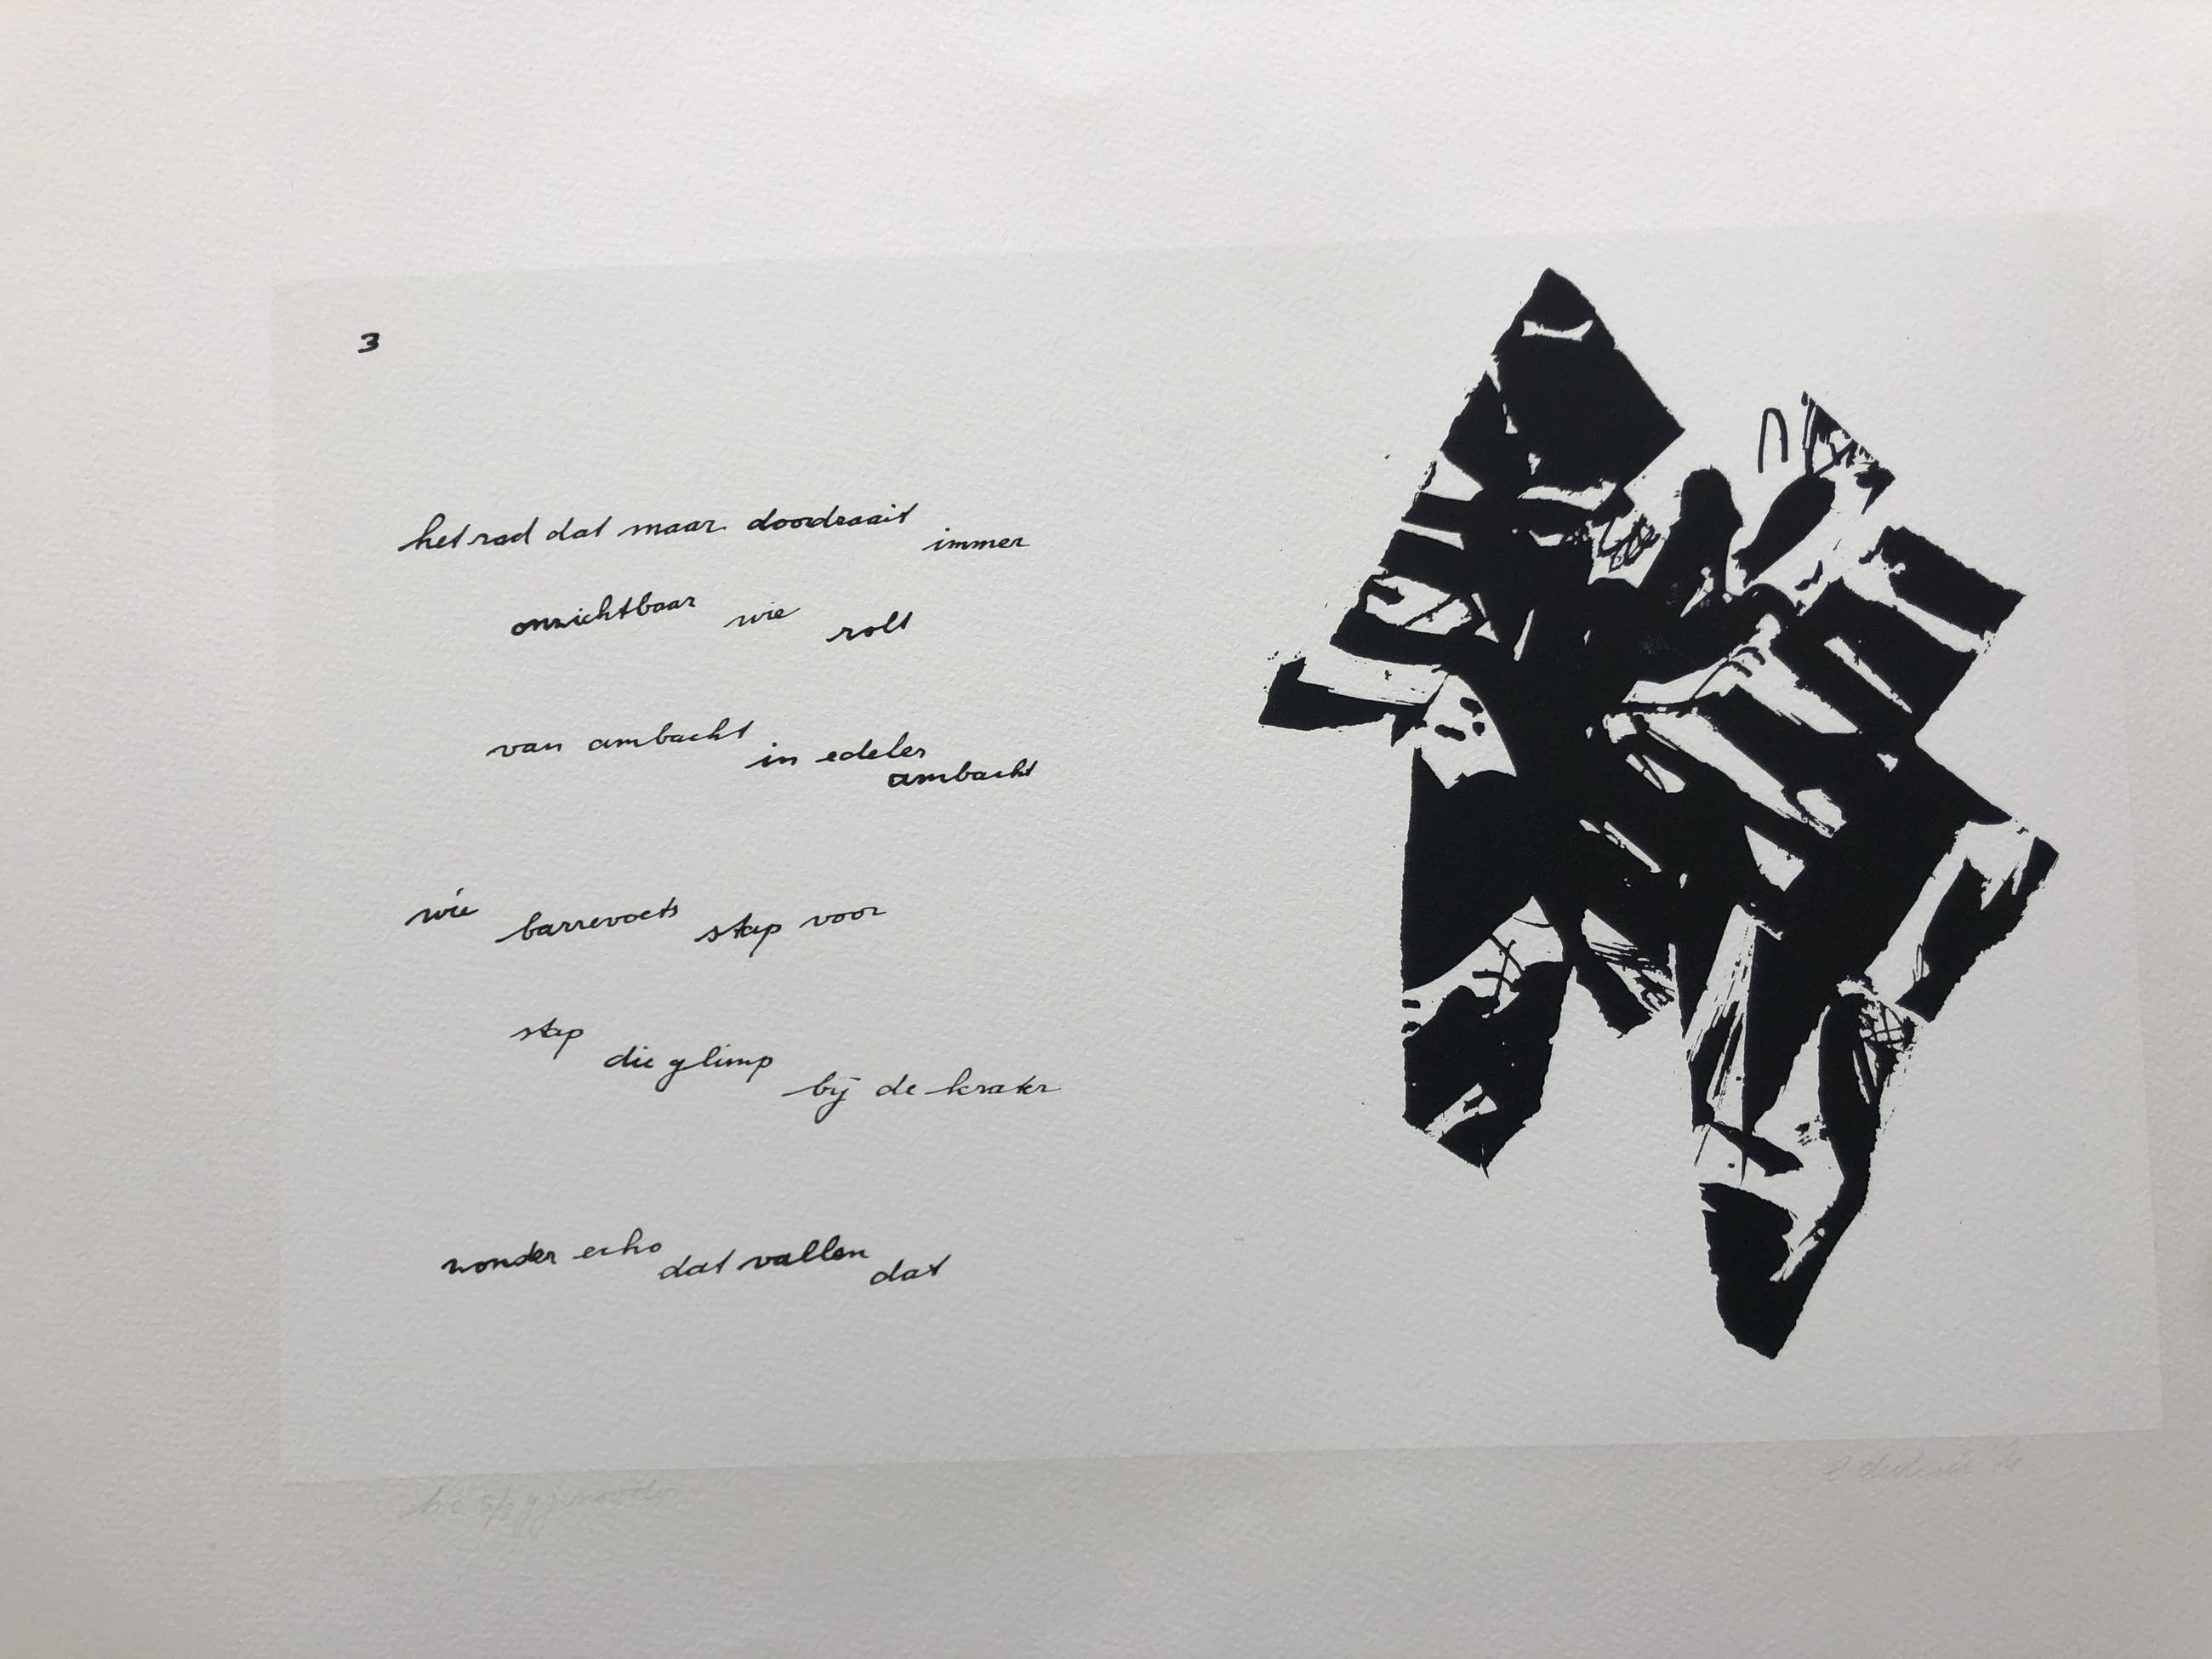 3
het rad dat maar doordraait immer
onzichtbaar wie rolt
van ambacht in edeler
ambacht
wie barrevoets stap voor
stap die glimp bij de krater
zonder echo dat vallen dat